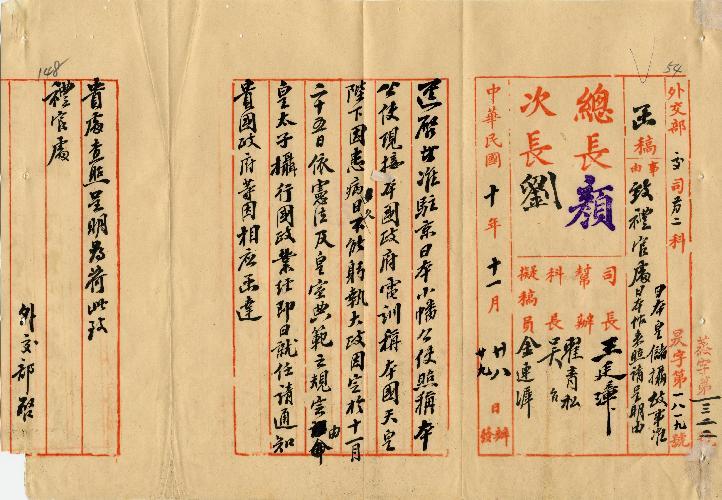 54
外交部 交 司 第二 科
函稿
事由
致禮官處日本皇儲攝政事准
日本作來照請呈明由
昃字第一八一九號
蒸字第一三二二
總長 顏
次長 劉
司長 王廷璋
幫辦 翟青松
科長 吳台
擬稿員 金連澤
中華民國 十 年 十一 月 廿八 日辦
廿九 發
逕啟者准駐京日本小幡公使照稱本
公使現接本國政府電訓稱本國天皇
陛下因患病日久不能躬執大政因定於十一月
二十五日依憲法及皇室典範之規定由
皇太子攝行國政業經即日就任請通知
貴國政府等因相應函達
貴處查照呈明為荷此致
禮官處
外交部啟
148